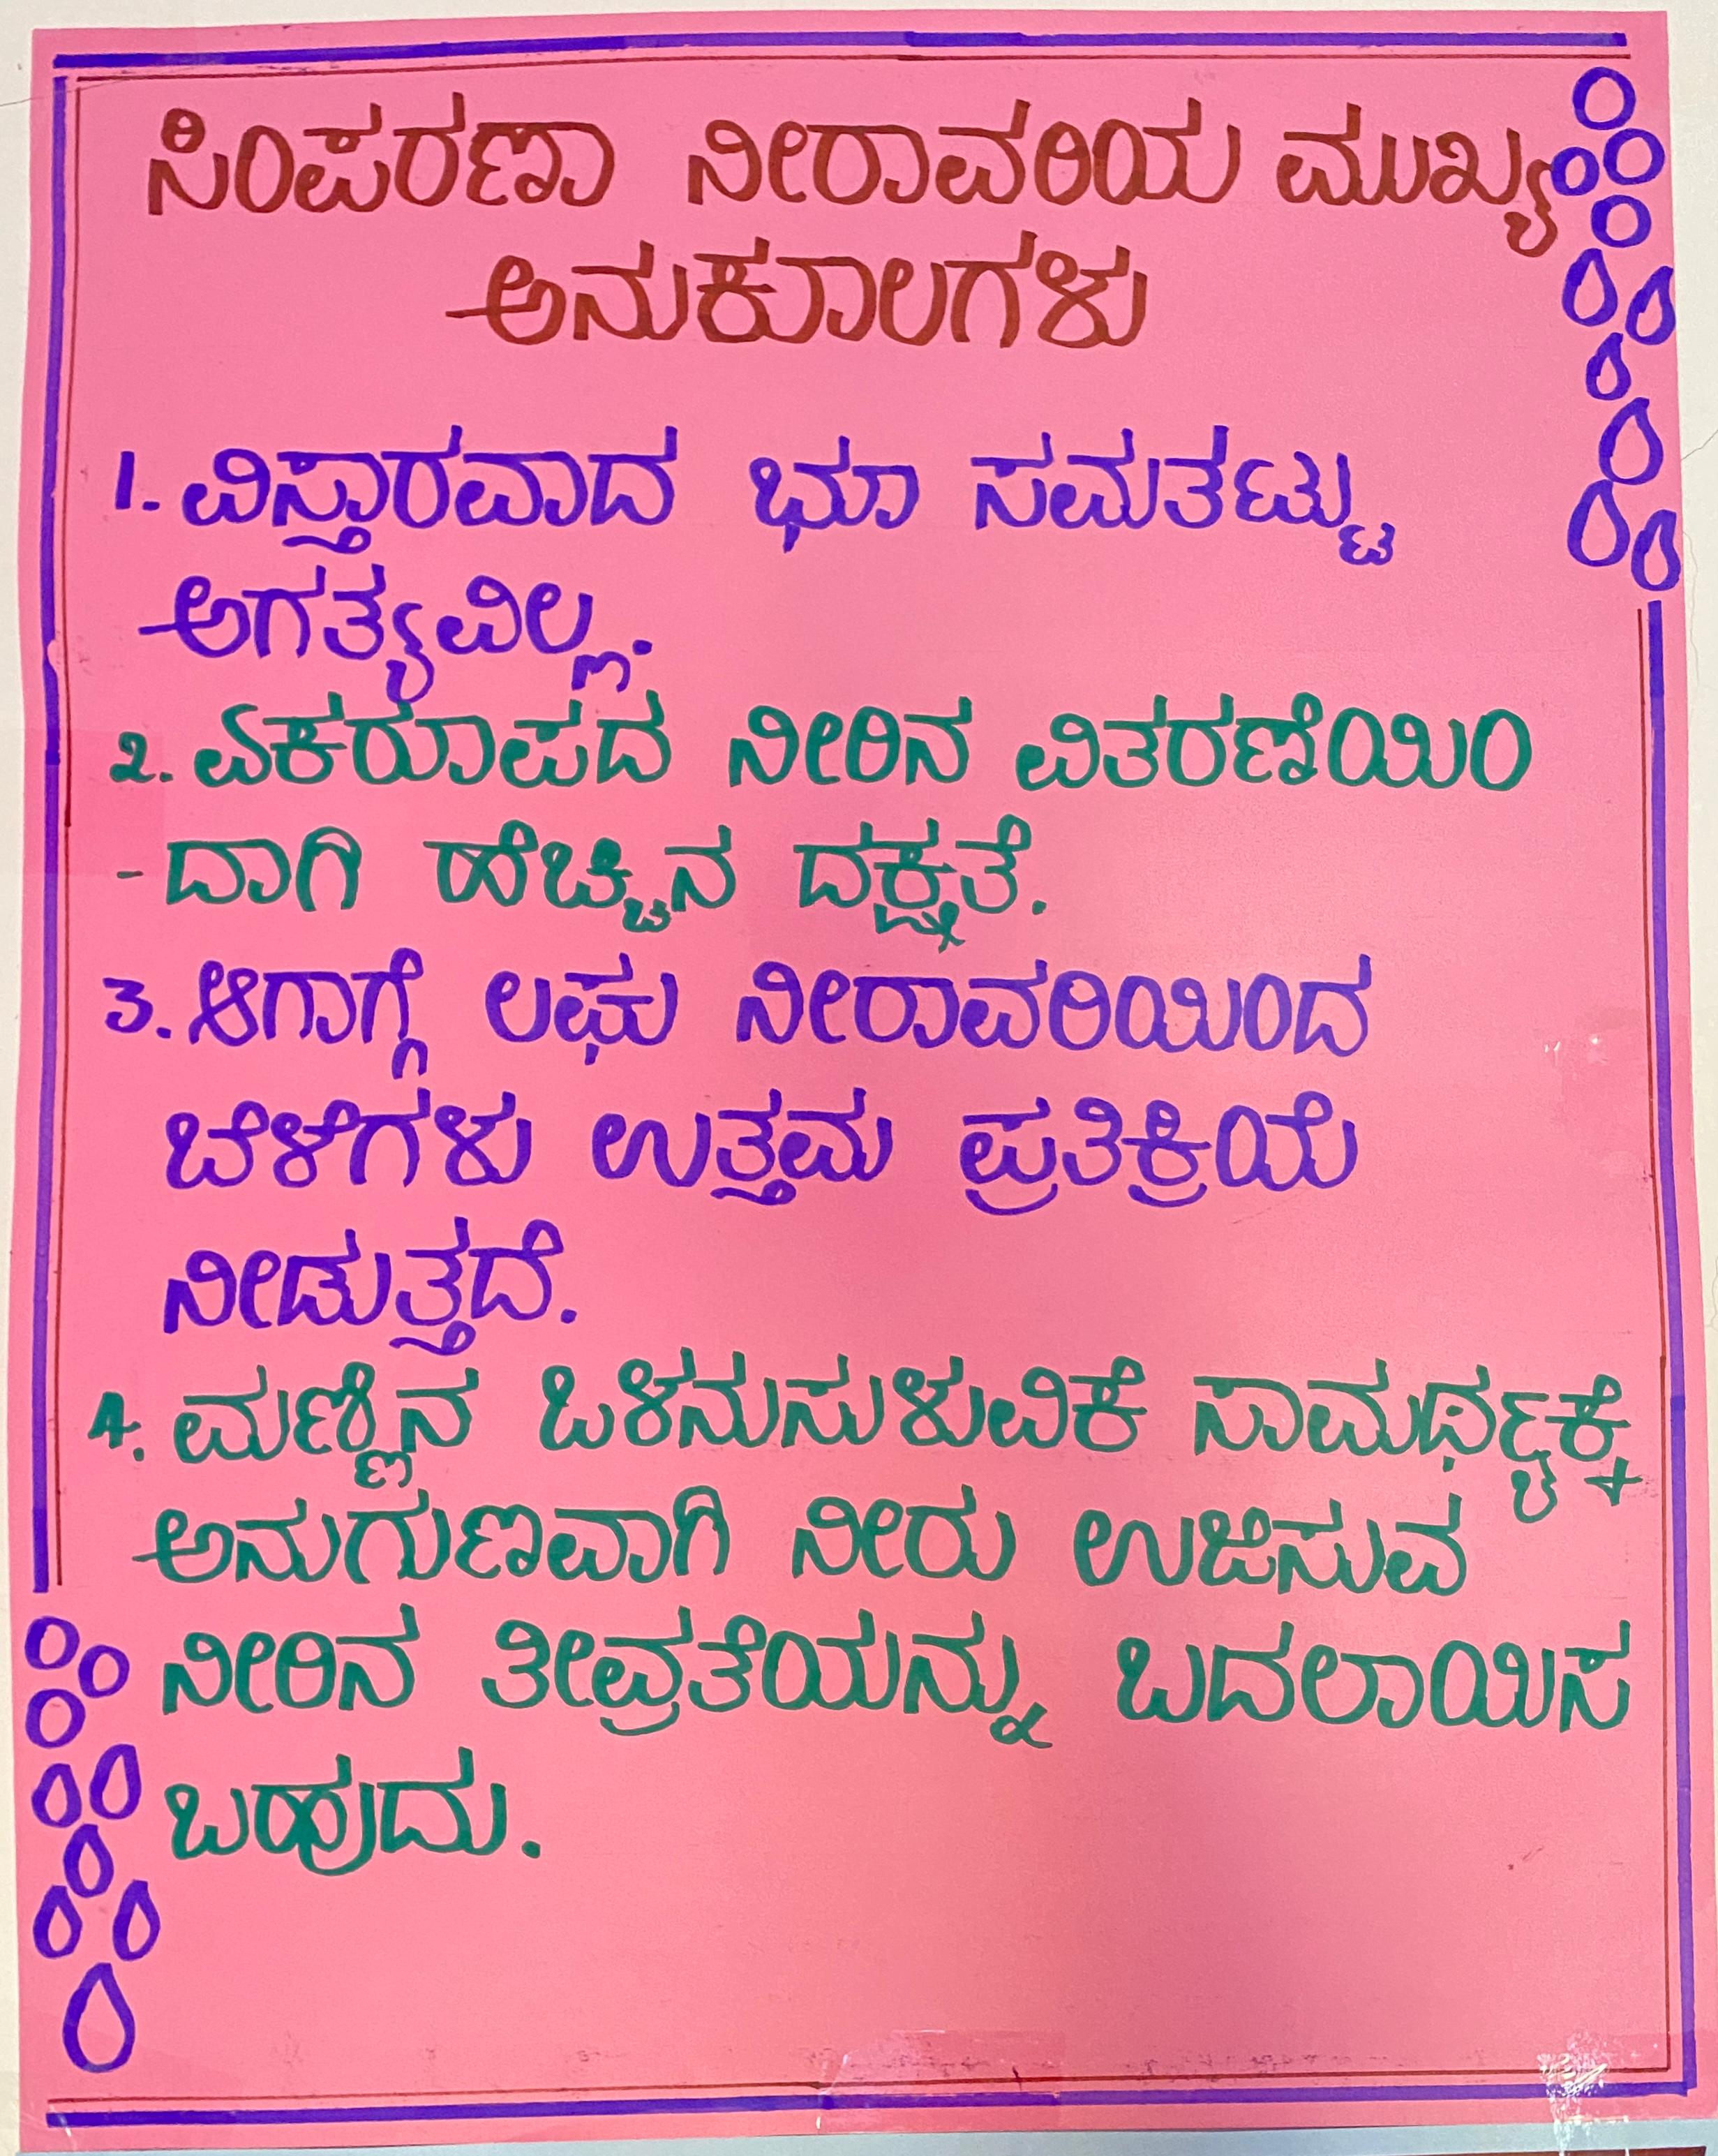 ಸಿಂಪರಣಾ ನೀರಾವರಿಯ ಮುಖ್ಯ
ಅನುಕೂಲಗಳು
1. ವಿಸ್ತಾರವಾದ ಭೂ ಸಮತಟ್ಟು
ಅಗತ್ಯವಿಲ್ಲ.
2. ಏಕರೂಪದ ನೀರಿನ ವಿತರಣೆಯಿಂ
-ದಾಗಿ ಹೆಚ್ಚಿನ ದಕ್ಷತೆ.
3. ಆಗಾಗ್ಗೆ ಲಘು ನೀರಾವರಿಯಿಂದ
ಬೆಳೆಗಳು ಉತ್ತಮ ಪ್ರತಿಕ್ರಿಯೆ
ನೀಡುತ್ತದೆ.
4. ಮಣ್ಣಿನ ಒಳನುಸುಳುವಿಕೆ ಸಾಮರ್ಥ್ಯಕ್ಕೆ
ಅನುಗುಣವಾಗಿ ನೀರು ಉಜಿಸುವ
ನೀರಿನ ತೀವ್ರತೆಯನ್ನು ಬದಲಾಯಿಸ
ಬಹುದು.